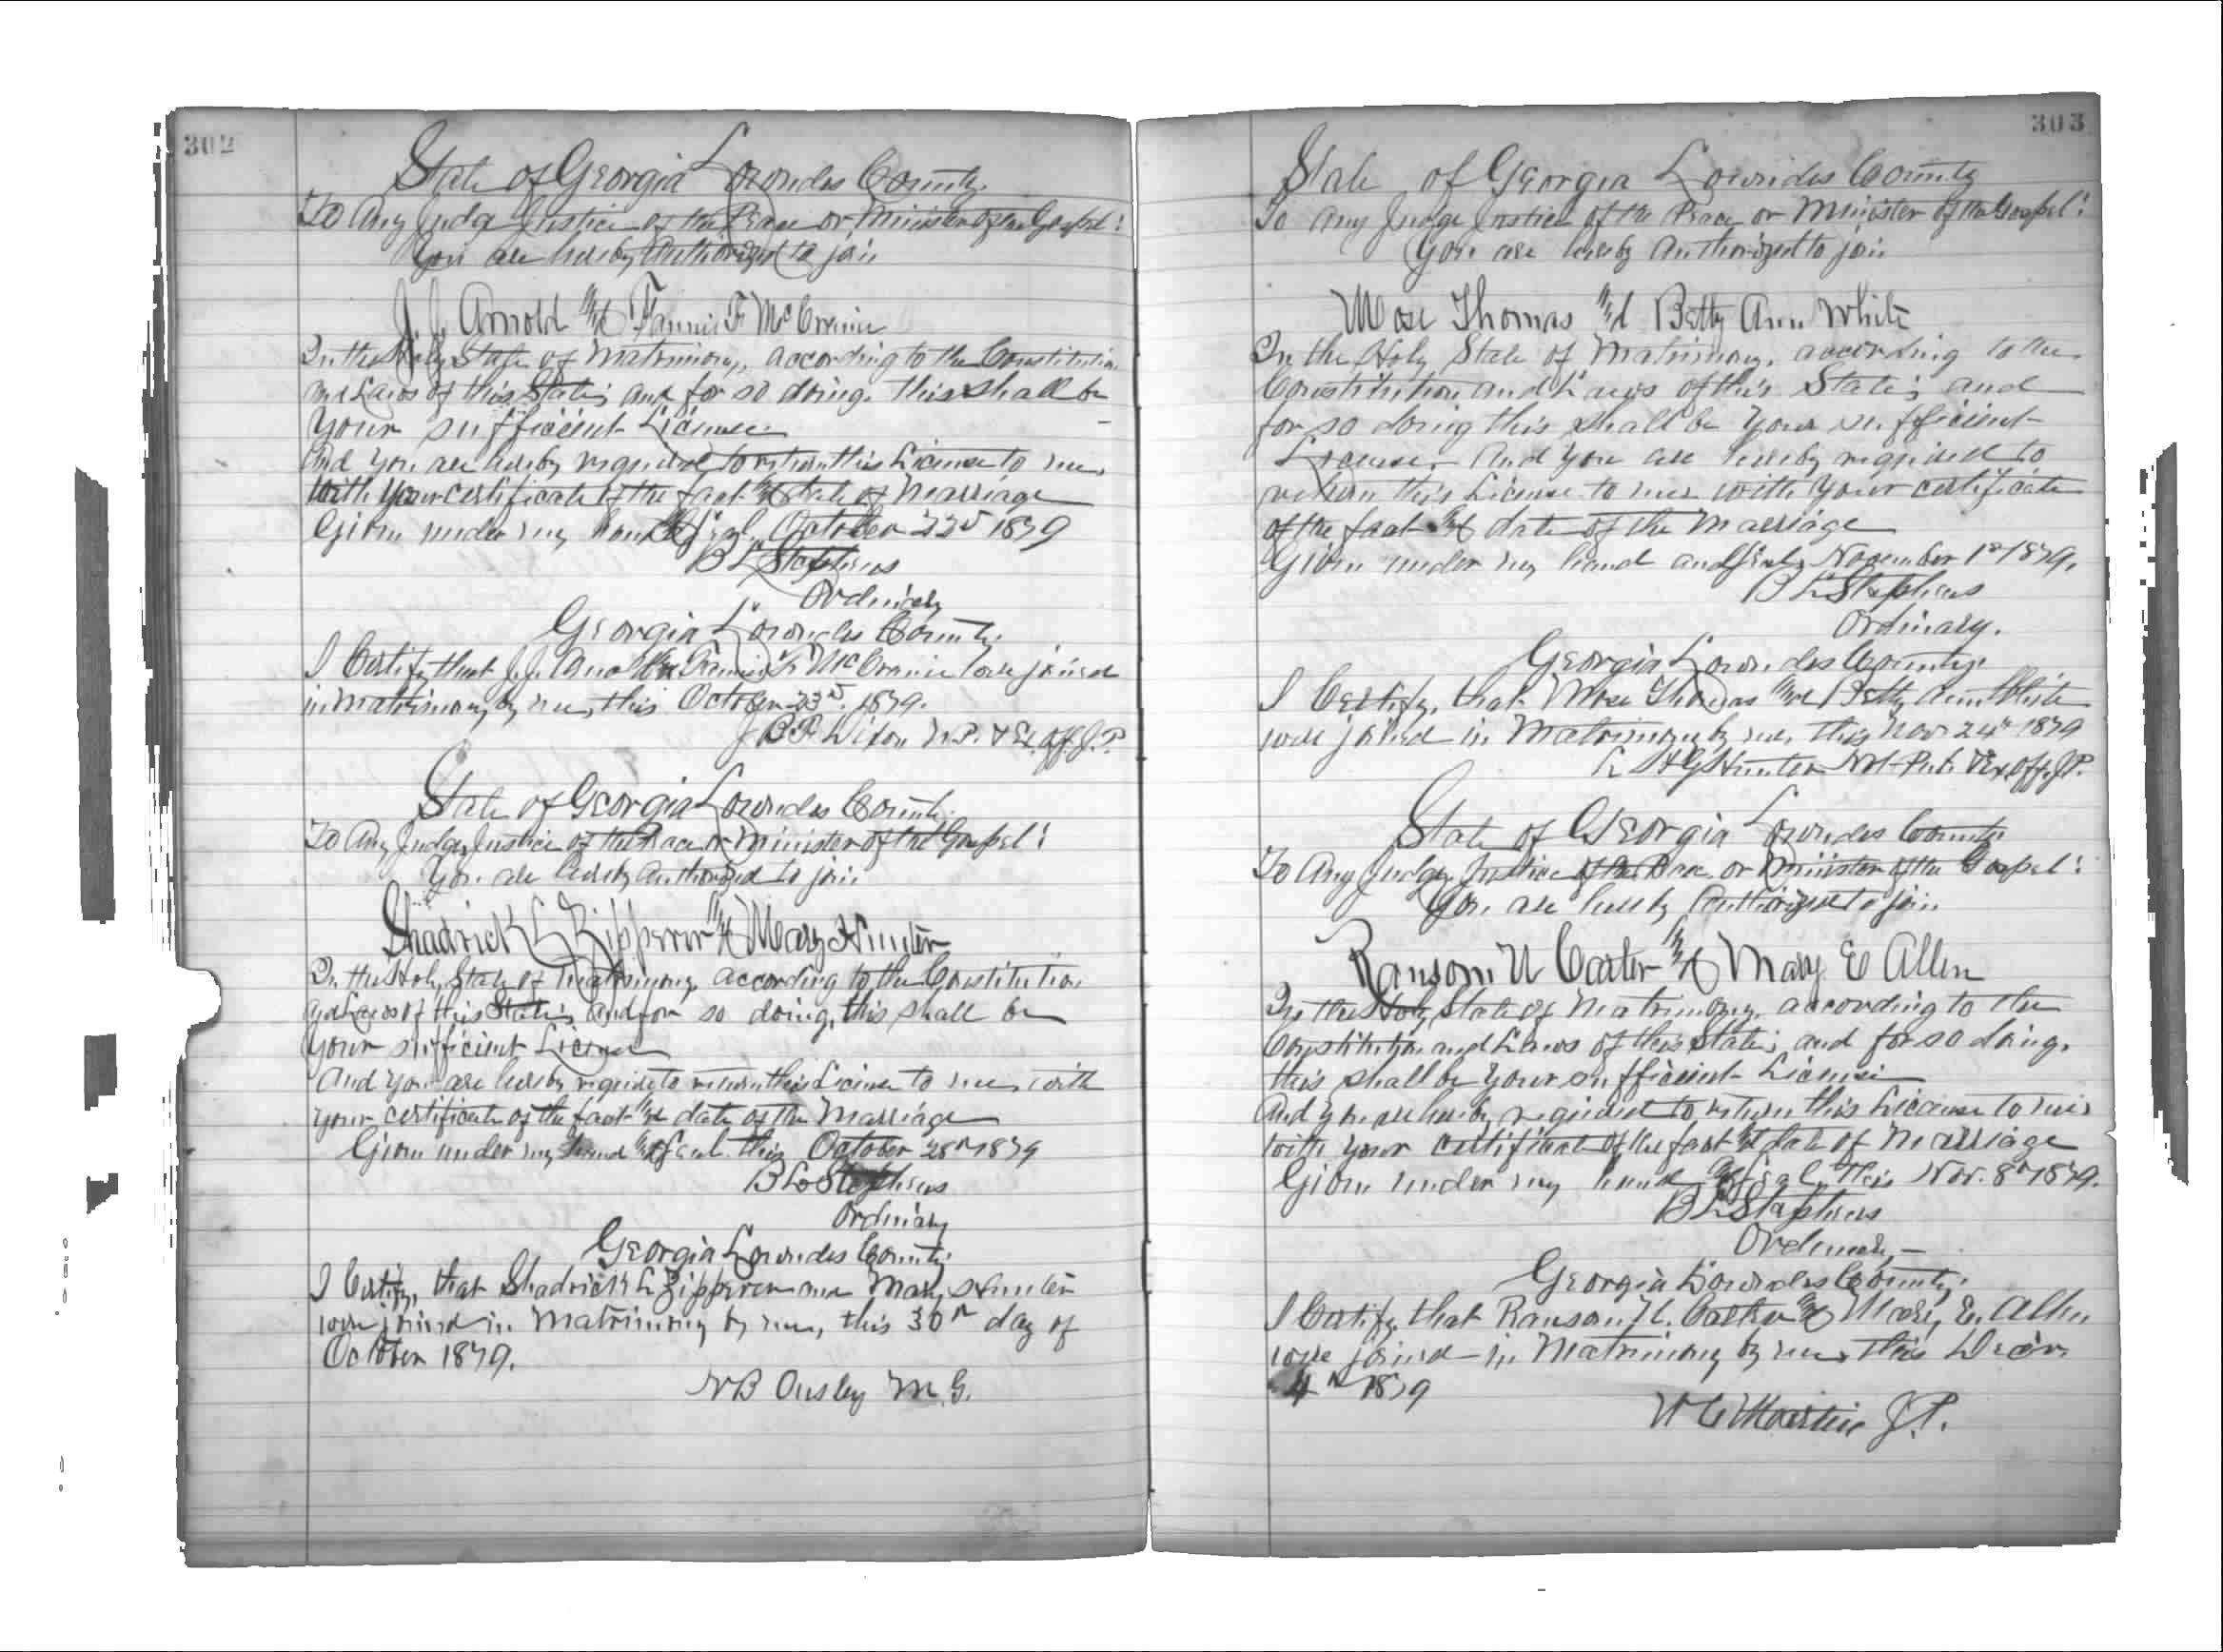 302
State of Georgia Lowndes County.
To Any Judge Justice of the Peace or Minister of the Gospel:
You are hereby Authorized to join
J. J. Arnold and Fannie F McCranie
In the Holy State of Matrimony, according to the Constitution
and Laws of this State; and for so doing this shall be
Your sufficient License
And You are hereby required to return this License to me,
with your certificate of the fact and date of Marriage
Given under my hand & seal October 22d 1879
B L Stephens
Ordinary
Georgia Lowndes County.
I Certify that J. J. Arnold and Fannie F McCranie were joined
in Matrimony by me, this October 23d 1879.
B F Dixon N.P. & Ex. Off. J.P.
State of Georgia Lowndes County.
To Any Judge, Justice of the Peace or Minister of the Gospel:
You are hereby Authorized to join
Shadrick L Zipperer and Mary Hunter
In the Holy State of Matrimony, according to the Constitution
and Laws of this State; and for so doing, this shall be
Your sufficient License
And You are hereby required to return this License to me, with
your certificate of the fact and date of the Marriage
Given under my hand and seal this October 28th 1879
B L Stephens
Ordinary
Georgia Lowndes County.
I Certify, that Shadrick L Zipperer and Mary Hunter
were joined in Matrimony by me, this 30th day of
October 1879.
N B Ousley M.G.
303
State of Georgia Lowndes County
To Any Judge Justice of the Peace or Minister of the Gospel:
You are hereby Authorized to join
Mose Thomas and Betty Ann White
In the Holy State of Matrimony, according to the
Constitution and Laws of this State; and
for so doing this shall be Your sufficient
License. And You are hereby required to
return this License to me with Your certificate
of the fact and date of the Marriage
Given under my hand and seal, November 1st 1879.
B L Stephens
Ordinary.
Georgia Lowndes County.
I Certify, that Mose Thomas and Betty Ann White
were joined in Matrimony by me, this Nov 24th 1879
Hunter Not. Pub. & Ex. Off. J.P.
State of Georgia Lowndes County
To Any Judge, Justice of the Peace or Minister of the Gospel:
You are hereby Authorized to join
Ransom U Carter and Mary E Allen
In the Holy State of Matrimony, according to the
Constitution and Laws of this State; and for so doing,
this shall be Your sufficient License
And you are hereby required to return this License to me
with your certificate of the fact and date of Marriage
Given under my hand and seal, this Nov. 8th 1879.
B L Stephens
Ordinary,
Georgia Lowndes County.
I Certify, that Ransom U. Carter and Mary E. Allen
were joined in Matrimony by me, this Decbr
4th 1879
J.P.